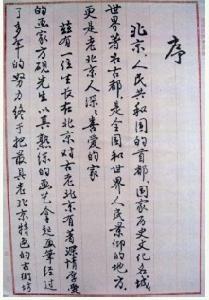 序
北京,人民共和国的首都,国家历史文化名城
世界著名古都,是全国和世界人民景仰的地方,
更是老北京人深喜爱的家
兹有一位生长在北京对古老北京有着深情厚爱
的画家方砚先生以真熟练的画艺拿起画笔经过
了多年的努力终于把最具老北京特色的古街坊